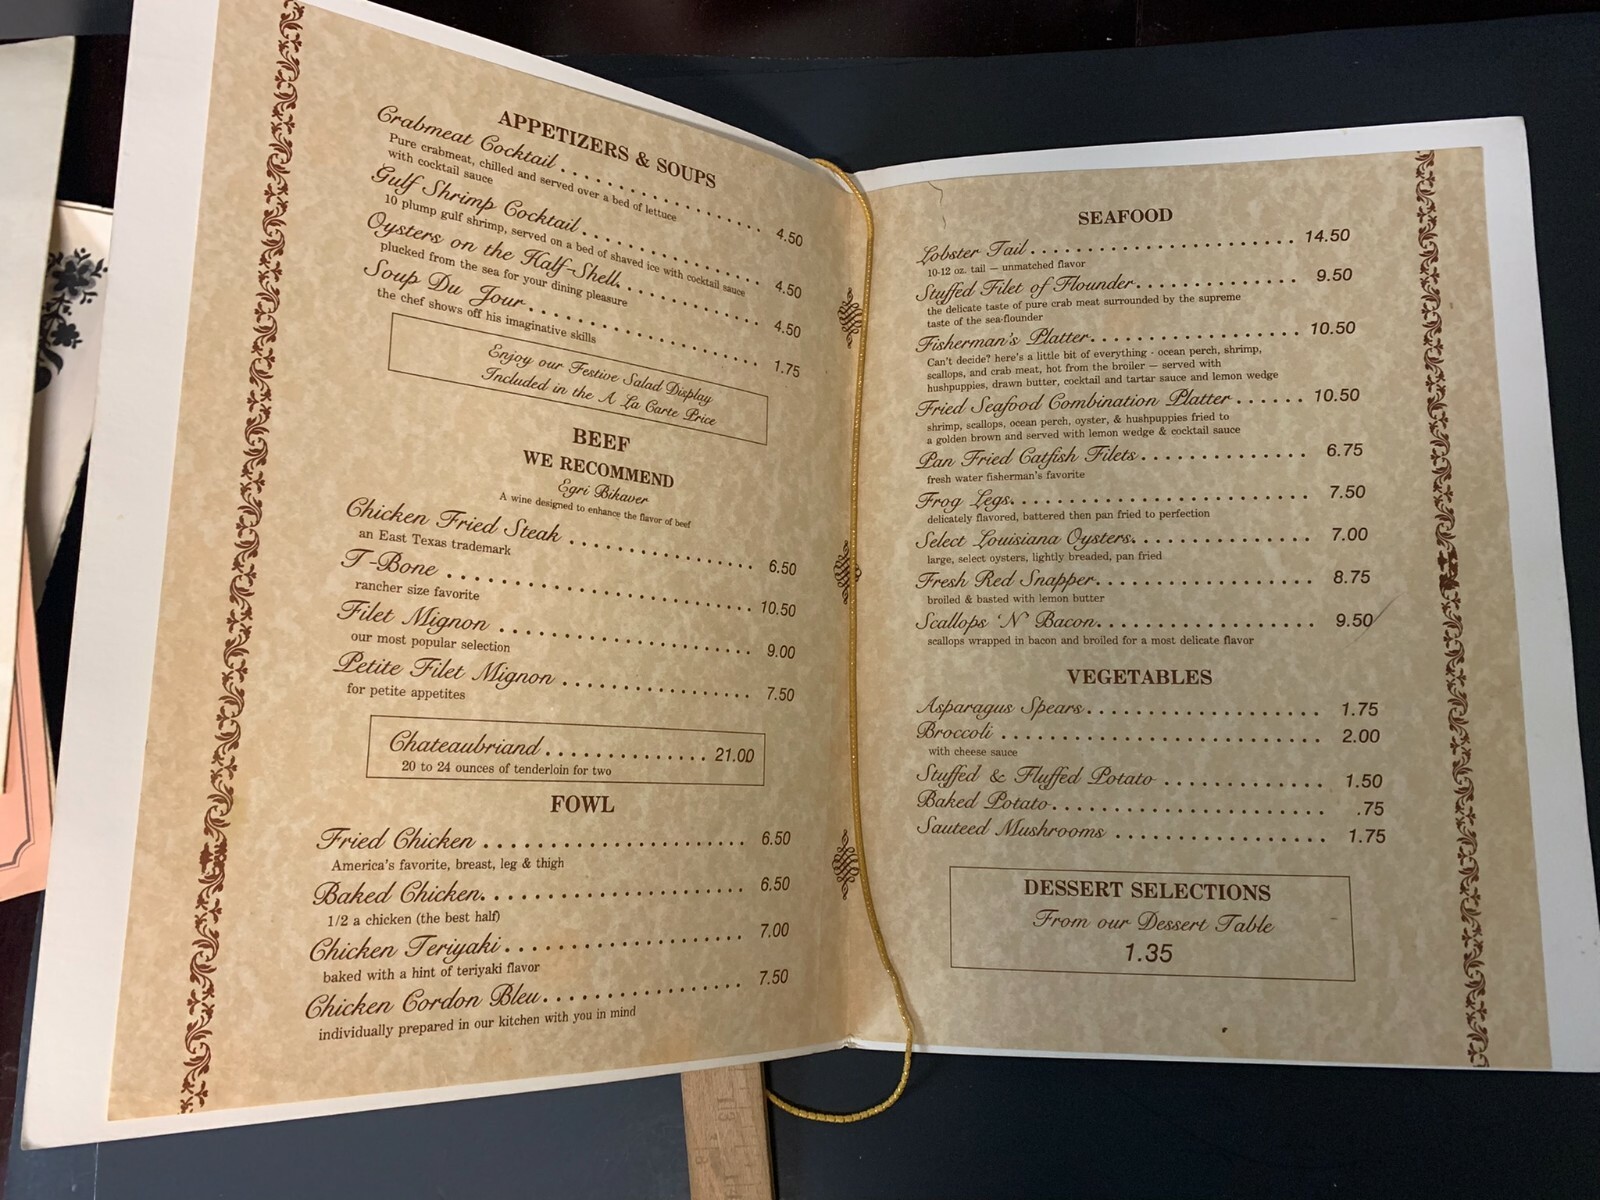 APPETIZERS & SOUPS
Crabmeat Cocktail . . . . . . . . . . . . . . . . . . . . 4.50
Pure crabmeat, chilled and served over a bed of lettuce
with cocktail sauce
Gulf Shrimp Cocktail . . . . . . . . . . . . . . . . . . 4.50
10 plump gulf shrimp, served on a bed of shaved ice with cocktail sauce
Oysters on the Half-Shell. . . . . . . . . . . . . . 4.50
plucked from the sea for your dining pleasure
Soup Du Jour . . . . . . . . . . . . . . . . . . . . . . 1.75
the chef shows off his imaginative skills
Enjoy our Festive Salad Display
Included in the A La Carte Price
BEEF
WE RECOMMEND
Egri Bikaver
A wine designed to enhance the flavor of beef
Chicken Fried Steak . . . . . . . . . . . . . . . . . . 6.50
an East Texas trademark
T-Bone . . . . . . . . . . . . . . . . . . . . . . . . . . 10.50
rancher size favorite
Filet Mignon . . . . . . . . . . . . . . . . . . . . . . 9.00
our most popular selection
Petite Filet Mignon . . . . . . . . . . . . . . . . . . 7.50
for petite appetites
Chateaubriand . . . . . . . . . . . . . . . 21.00
20 to 24 ounces of tenderloin for two
FOWL
Fried Chicken . . . . . . . . . . . . . . . . . . . . . . 6.50
America's favorite, breast, leg & thigh
Baked Chicken. . . . . . . . . . . . . . . . . . . . . . 6.50
1/2 a chicken (the best half)
Chicken Teriyaki . . . . . . . . . . . . . . . . . . . . 7.00
baked with a hint of teriyaki flavor
Chicken Cordon Bleu. . . . . . . . . . . . . . . . . 7.50
individually prepared in our kitchen with you in mind
SEAFOOD
Lobster Tail . . . . . . . . . . . . . . . . . . . . . . . 14.50
10-12 oz. tail — unmatched flavor
Stuffed Filet of Flounder. . . . . . . . . . . . . . 9.50
the delicate taste of pure crab meat surrounded by the supreme
taste of the sea-flounder
Fisherman's Platter. . . . . . . . . . . . . . . . . . 10.50
Can't decide? here's a little bit of everything - ocean perch, shrimp,
scallops, and crab meat, hot from the broiler — served with
hushpuppies, drawn butter, cocktail and tartar sauce and lemon wedge
Fried Seafood Combination Platter . . . . . . 10.50
shrimp, scallops, ocean perch, oyster, & hushpuppies fried to
a golden brown and served with lemon wedge & cocktail sauce
Pan Fried Catfish Filets . . . . . . . . . . . . . . 6.75
fresh water fisherman's favorite
Frog Legs. . . . . . . . . . . . . . . . . . . . . . . . . 7.50
delicately flavored, battered then pan fried to perfection
Select Louisiana Oysters. . . . . . . . . . . . . . 7.00
large, select oysters, lightly breaded, pan fried
Fresh Red Snapper. . . . . . . . . . . . . . . . . . 8.75
broiled & basted with lemon butter
Scallops 'N' Bacon. . . . . . . . . . . . . . . . . . 9.50
scallops wrapped in bacon and broiled for a most delicate flavor
VEGETABLES
Asparagus Spears. . . . . . . . . . . . . . . . . . . 1.75
Broccoli . . . . . . . . . . . . . . . . . . . . . . . . . . 2.00
with cheese sauce
Stuffed & Fluffed Potato . . . . . . . . . . . . . 1.50
Baked Potato. . . . . . . . . . . . . . . . . . . . . . .75
Sauteed Mushrooms . . . . . . . . . . . . . . . . . 1.75
DESSERT SELECTIONS
From our Dessert Table
1.35